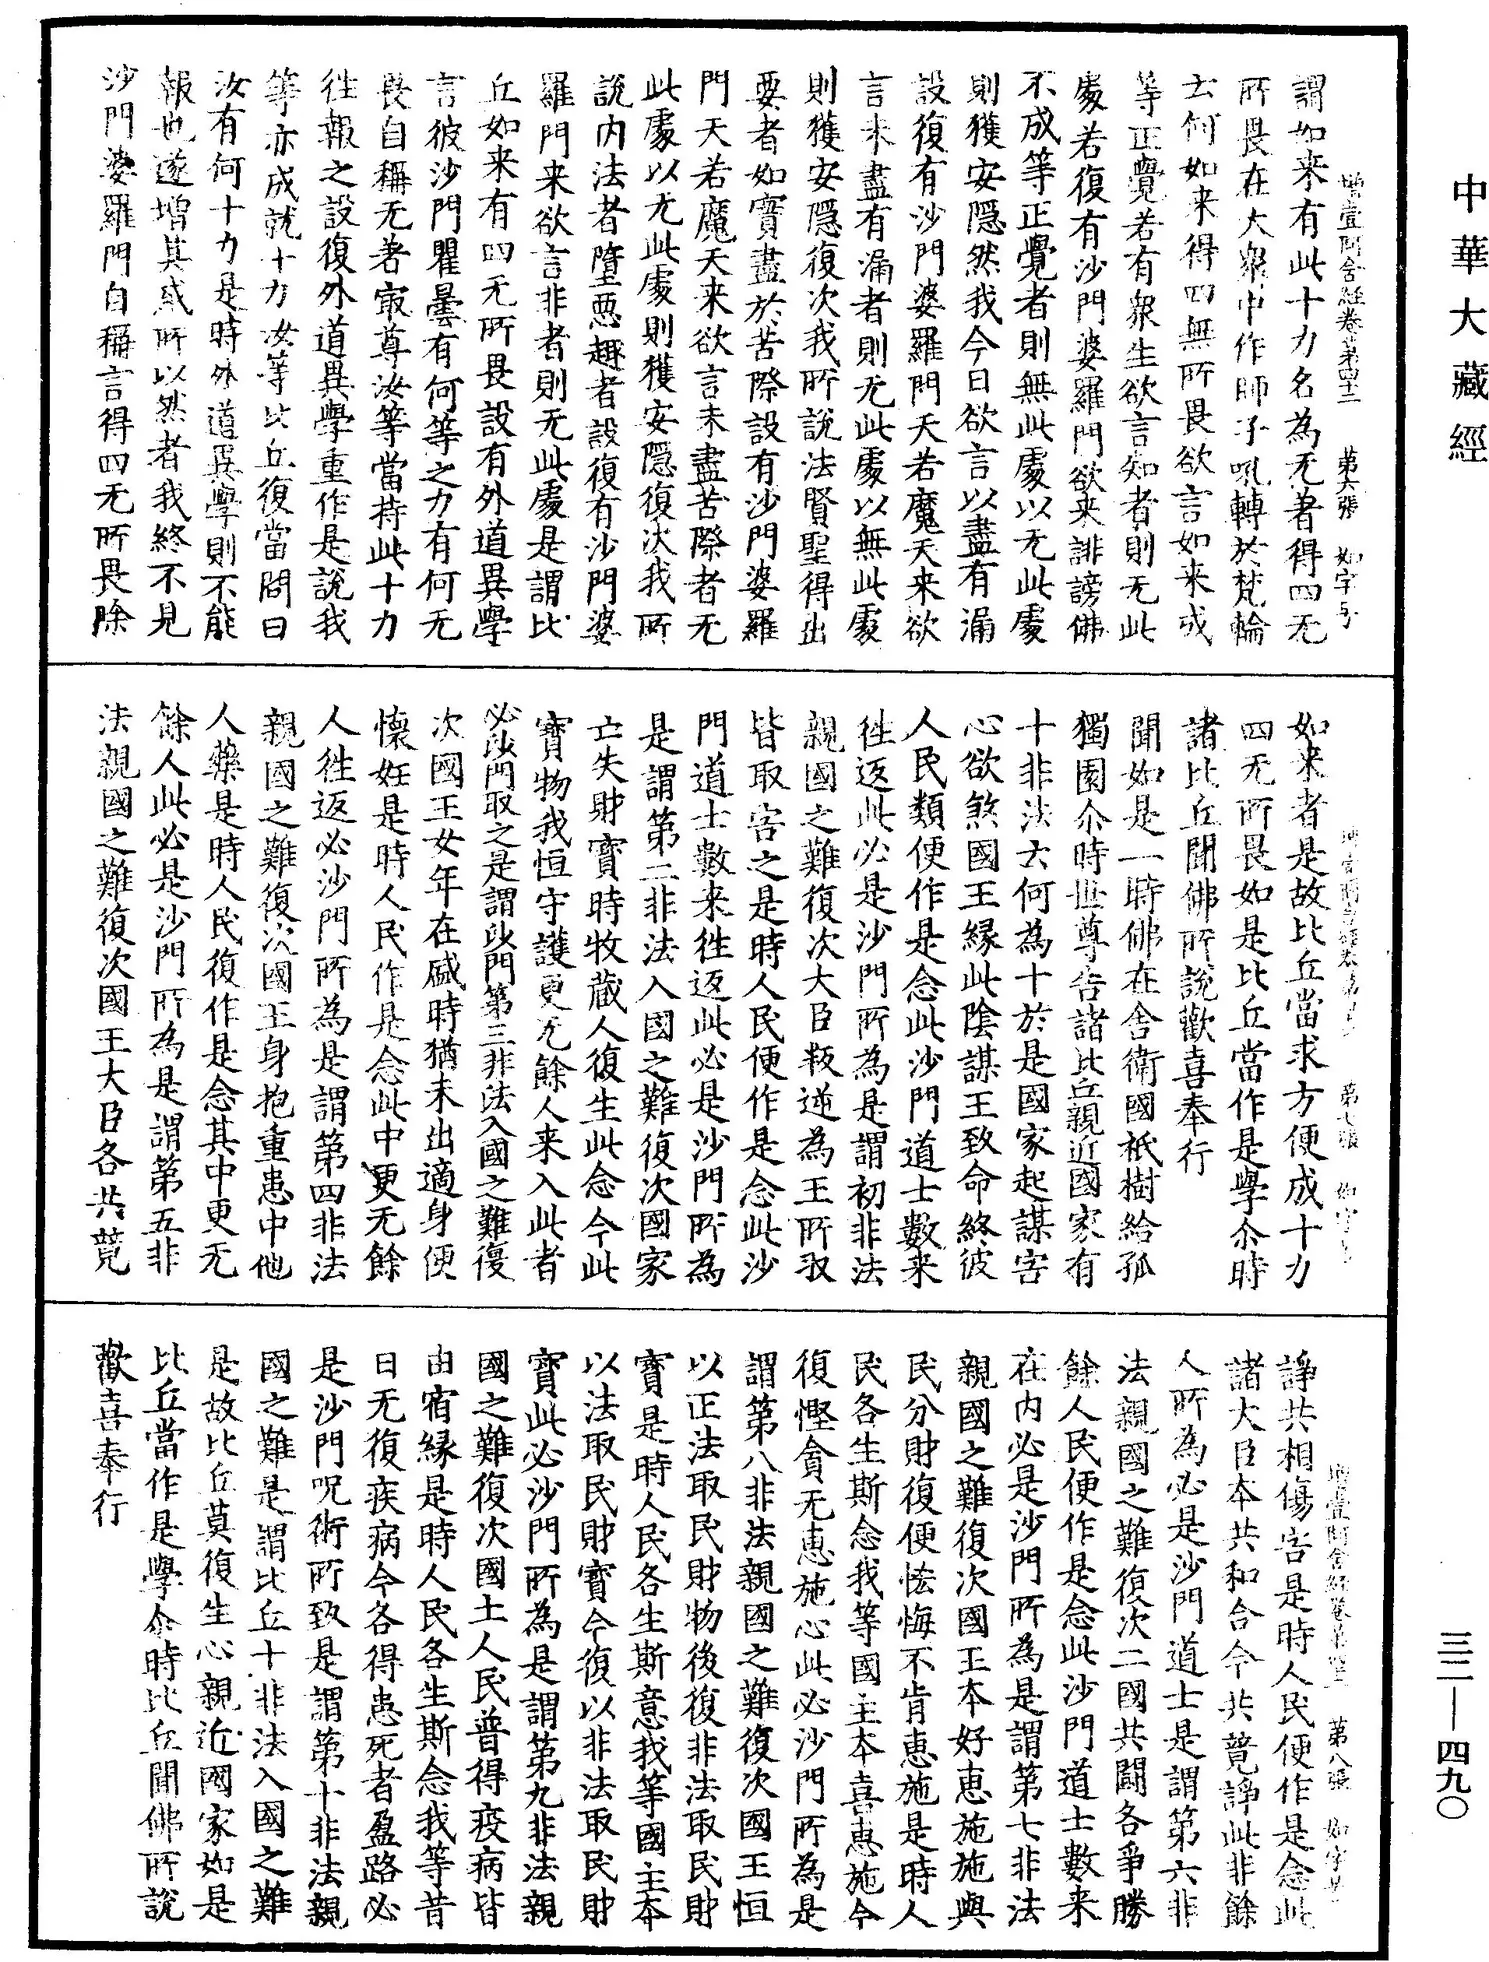 中華大藏經
三二—四九〇
增壹阿含經卷第四十二 第六張 如字号
謂如来有此十力名為无著得四无
所畏在大衆中作師子吼轉於梵輪
云何如来得四無所畏欲言如来成
等正覺若有衆生欲言知者則无此
處若復有沙門婆羅門欲来誹謗佛
不成等正覺者則無此處以无此處
則獲安隱然我今日欲言以盡有漏
設復有沙門婆羅門天若魔天来欲
言未盡有漏者則无此處以無此處
則獲安隱復次我所說法賢聖得出
要者如實盡於苦際設有沙門婆羅
門天若魔天来欲言未盡苦際者无
此處以无此處則獲安隱復次我所
說內法者墮惡趣者設復有沙門婆
羅門来欲言非者則无此處是謂比
丘如来有四无所畏設有外道異學
言彼沙門瞿曇有何等之力有何无
畏自稱无著冣尊汝等當持此十力
往報之設復外道異學重作是說我
等亦成就十力汝等比丘復當問曰
汝有何十力是時外道異學則不能
報也遂增其惑所以然者我終不見
沙門婆羅門自稱言得四无所畏除
第七張 如字
如来者是故比丘當求方便成十力
四无所畏如是比丘當作是學尒時
諸比丘聞佛所說歡喜奉行
聞如是一時佛在舍衛國祇樹給孤
獨園尒時世尊告諸比丘親近國家有
十非法云何為十於是國家起謀害
心欲煞國王緣此陰謀王致命終彼
人民類便作是念此沙門道士數来
往返此必是沙門所為是謂初非法
親國之難復次大臣叛逆為王所収
皆取害之是時人民便作是念此沙
門道士數来往返此必是沙門所為
是謂第二非法入國之難復次國家
亡失財寶時牧藏人復生此念今此
寶物我恒守護更无餘人来入此者
必沙門取之是謂沙門第三非法入國之難復
次國王女年在盛時猶未出適身便
懷妊是時人民作是念此中更无餘
人往返必沙門所為是謂第四非法
親國之難復次國王身抱重患中他
人藥是時人民復作是念其中更无
餘人此必是沙門所為是謂第五非
法親國之難復次國王大臣各共競
增壹阿含經卷第四十二 第八張 如字号
諍共相傷害是時人民便作是念此
諸大臣夲共和合今共競諍此非餘
人所為必是沙門道士是謂第六非
法親國之難復次二國共鬪各爭勝
餘人民便作是念此沙門道士數来
在內必是沙門所為是謂第七非法
親國之難復次國王夲好惠施與
民分財復便悋悔不肯惠施是時人
民各生斯念我等國主夲喜惠施今
復慳貪无惠施心此必沙門所為是
謂第八非法親國之難復次國王恒
以正法取民財物後復非法取民財
寶是時人民各生斯意我等國主夲
以法取民財寶今復以非法取民財
寶此必沙門所為是謂第九非法親
國之難復次國土人民普得疫病皆
由宿緣是時人民各生斯念我等昔
日无復疾病今各得患死者盈路必
是沙門呪術所致是謂第十非法親
國之難是謂比丘十非法入國之難
是故比丘莫復生心親近國家如是
比丘當作是學尒時比丘聞佛所說
歡喜奉行